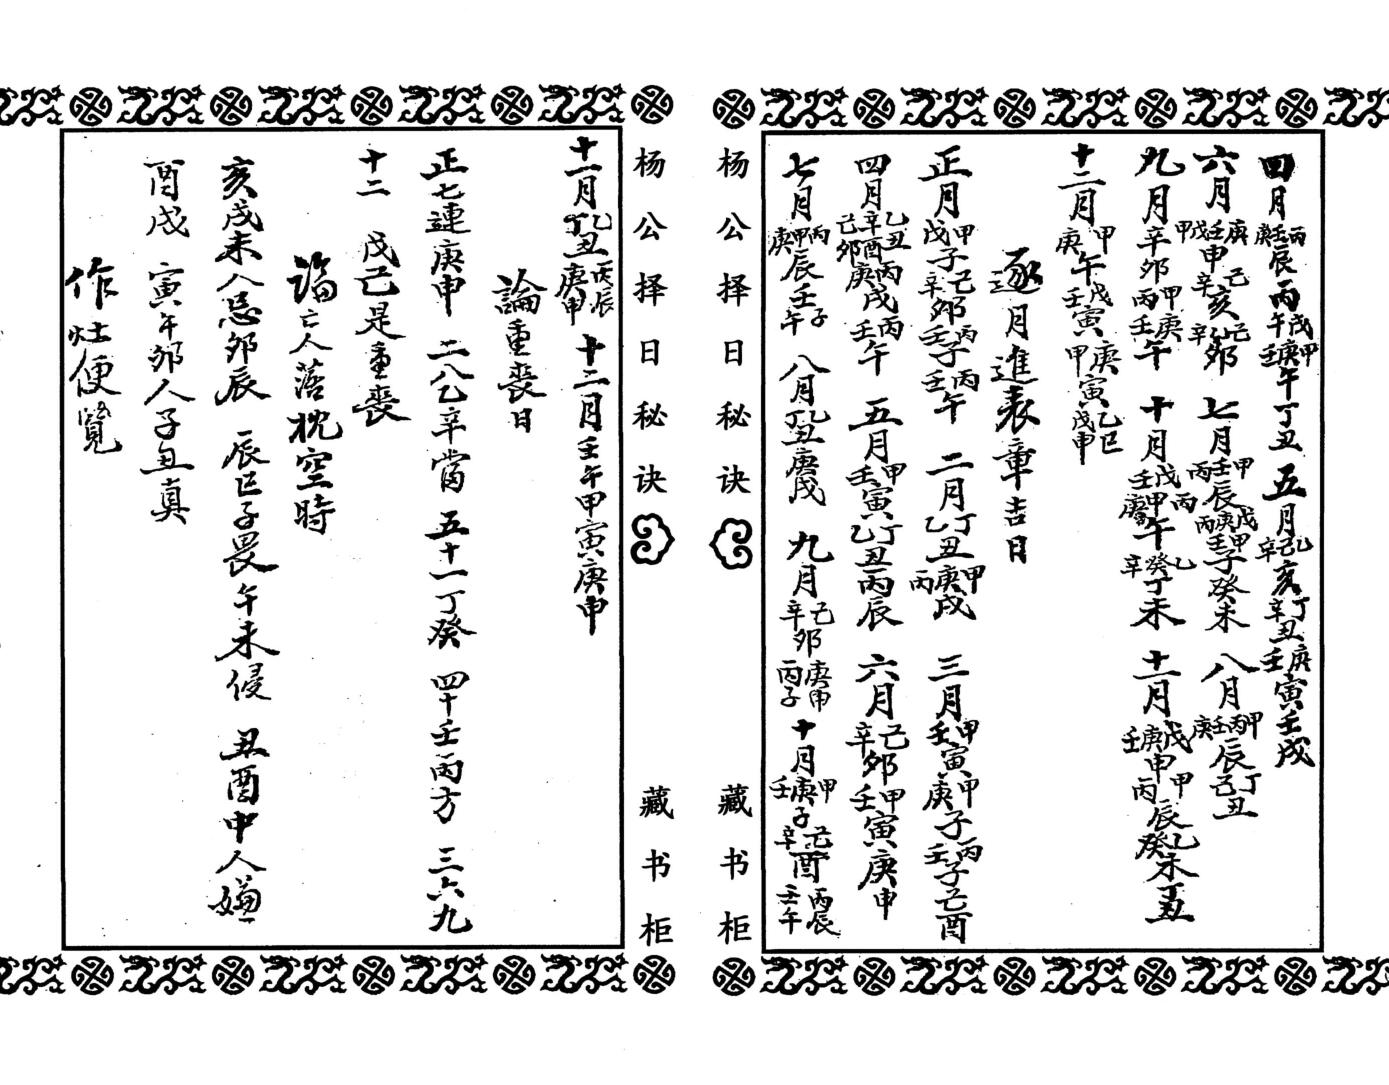 四月丙壬庚辰丙午戊庚甲壬午丁丑 五月乙己辛亥丁辛丑庚壬寅壬戌
六月庚壬戊甲申己辛亥己辛卯 七月甲壬丙辰戊庚丙甲壬子癸未 八月甲丙壬庚辰丁己丑
九月辛卯甲庚丙壬午 十月戊甲壬丙庚午乙癸辛丁未 十一月戊庚壬申甲丙辰乙癸未丁丑
十二月甲庚午戊壬寅庚甲寅乙巳戊申
逐月進表章吉日
正月甲戊子己辛卯丙壬子丙壬午 二月丁乙丑甲庚丙戌 三月甲壬寅甲庚子丙壬子己酉
四月乙丑辛酉己卯丙庚戌丙壬午 五月甲壬寅丁乙丑丙辰 六月己辛卯甲壬寅庚申
七月丙甲庚辰壬子午 八月乙丁丑庚戌 九月己辛卯庚申丙子 十月甲庚壬子己辛酉丙辰壬午
杨公择日秘诀
藏书柜
杨公择日秘诀
藏书柜
十一月乙丁丑丙辰庚申 十二月壬午甲寅庚申
論重喪日
正七連庚申 二八乙辛當 五十一丁癸 四十壬丙方 三六九
十二 戊己是重喪
論亡人落枕空時
亥戌未人忌卯辰 辰巳子畏午未侵 丑酉中人嫌
酉戌 寅午卯人子丑真
作灶便覽